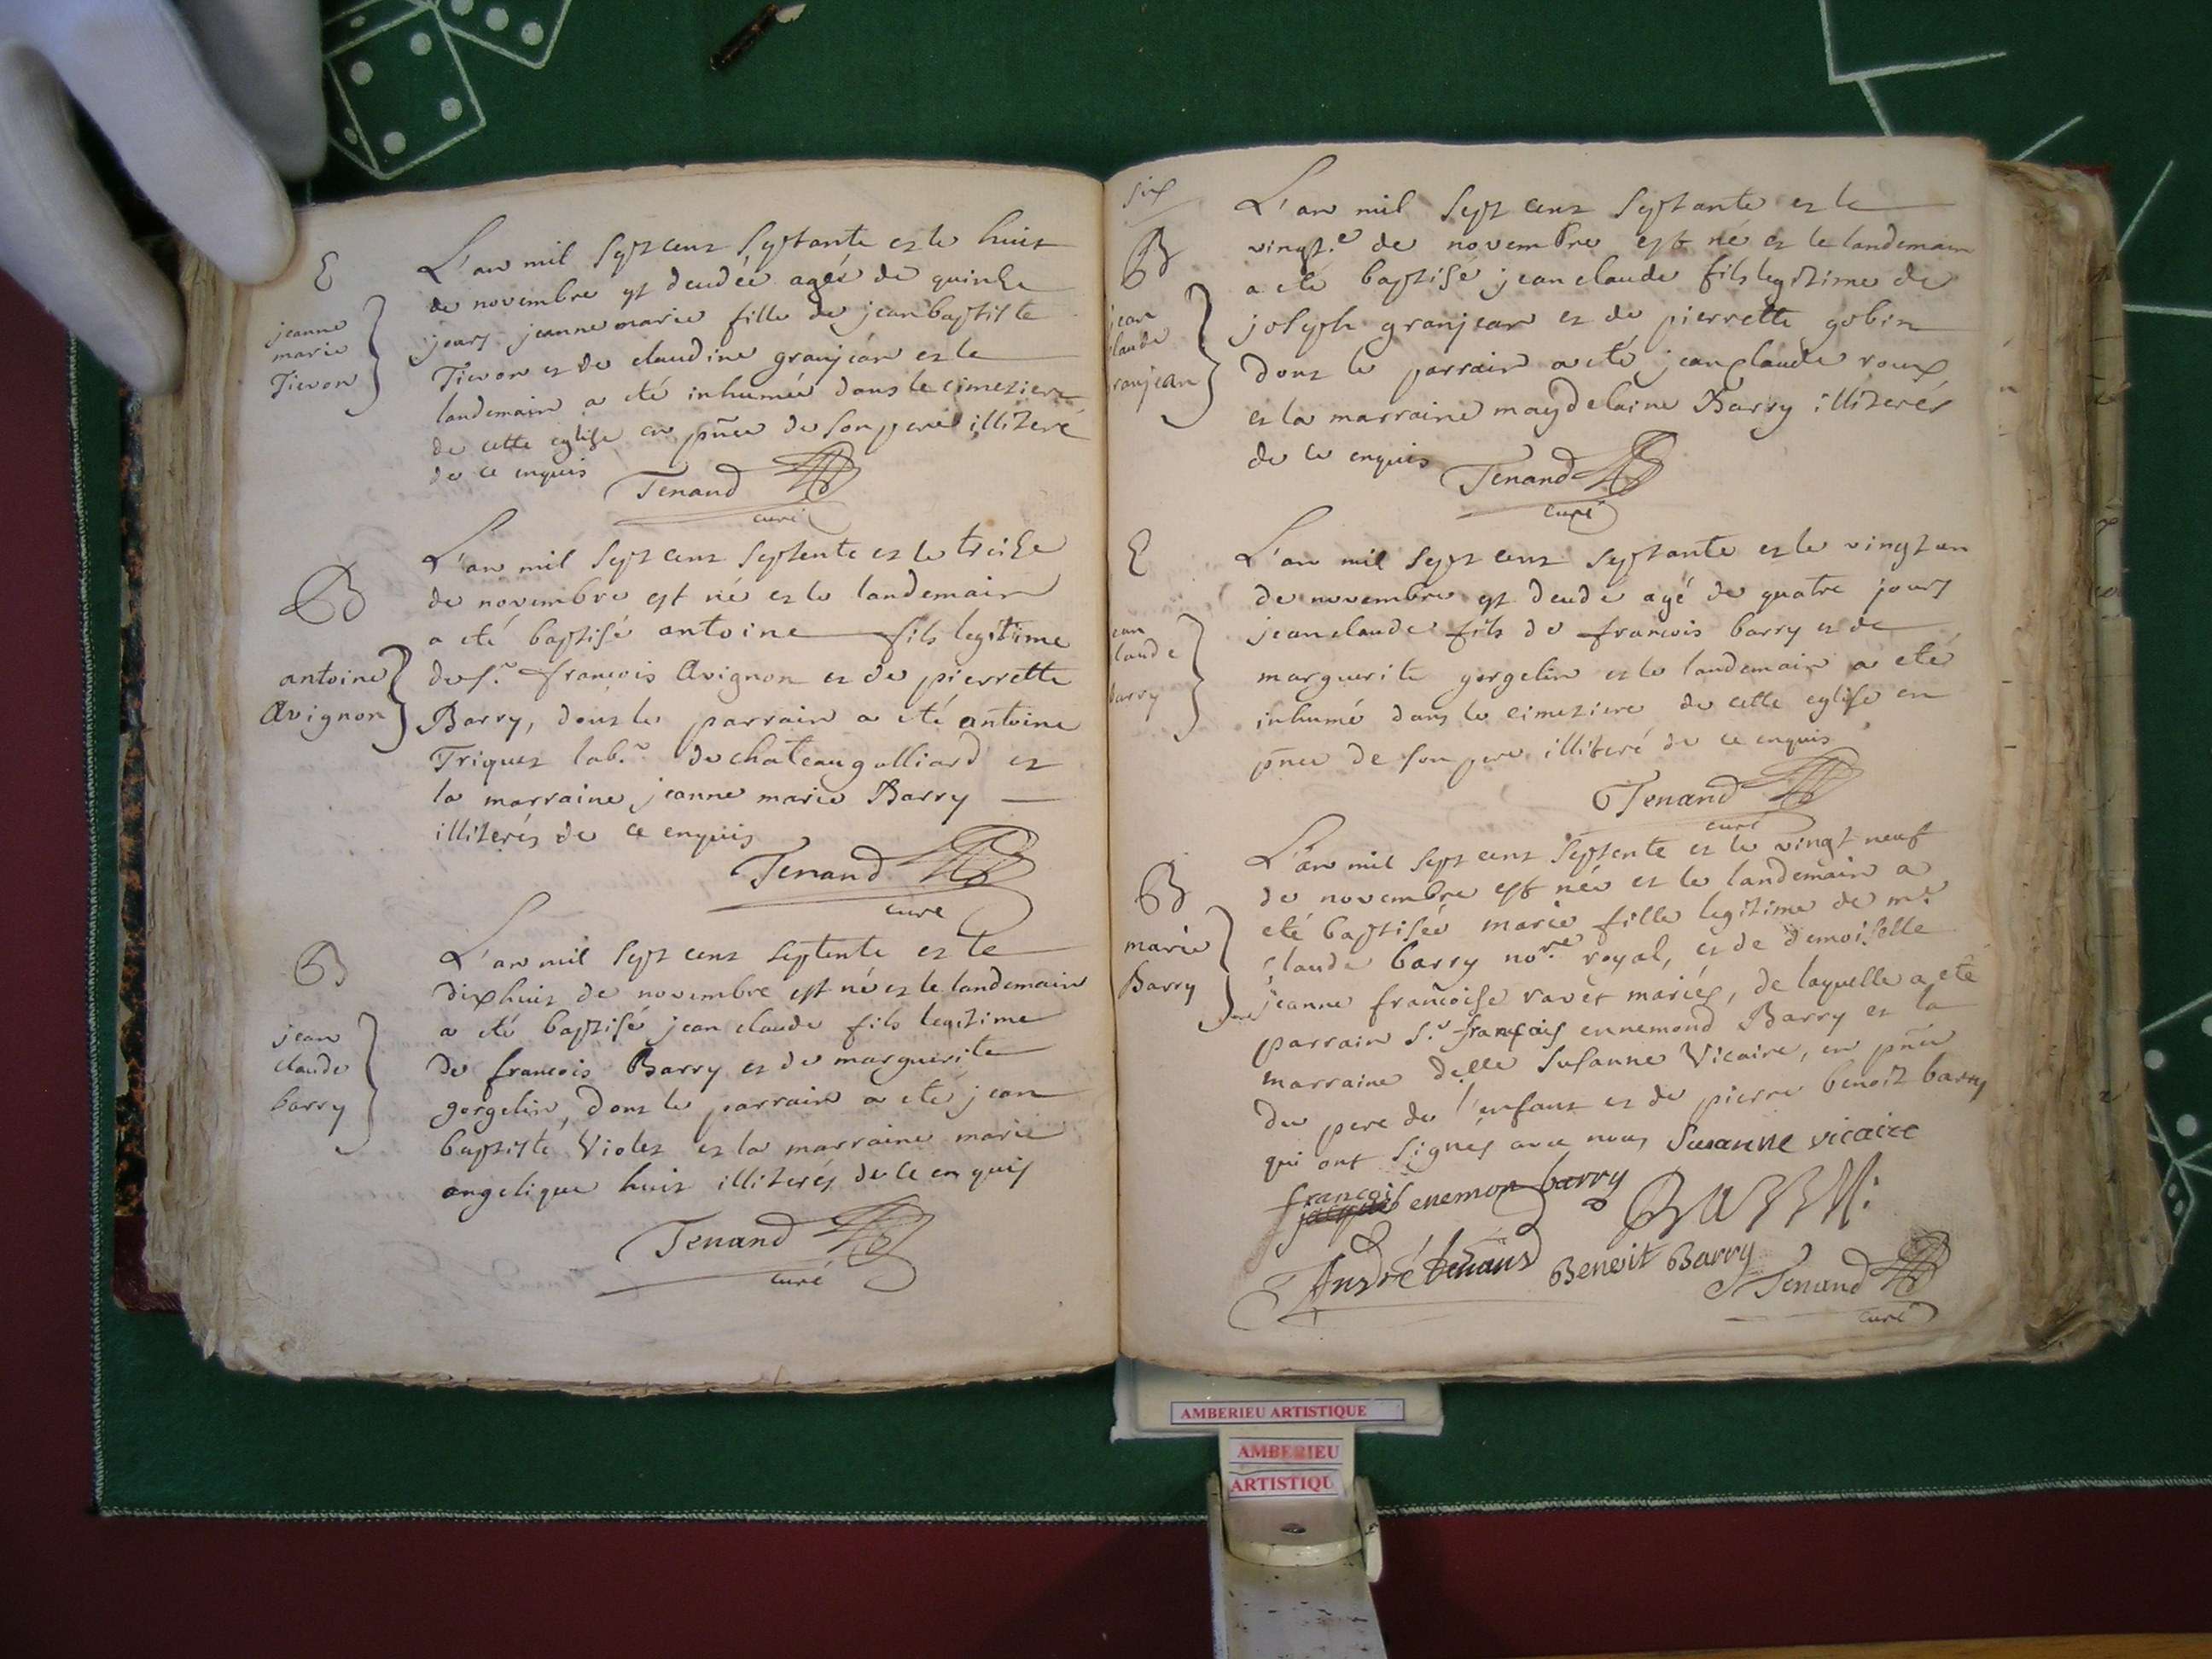 E
jeanne
marie
Tievon
L'an mil sept cent septante et le huit
de novembre est decedée agée de quinze
jours jeanne marie fille de jean baptiste
Tievon et de claudine granjean et le
landemain a été inhumée dans le cimetiere
de cette eglise en pñce de son pere illiteré
de ce enquis
Tenand
curé
B
antoine
Avignon
L'an mil sept cent septente et le treize
de novembre est né et le landemain
a eté baptisé antoine fils legitime
de s.r francois Avignon et de pierrette
Barry, dont le parrain a eté antoine
Triquet lab.r de chateaugalliard et
la marraine jeanne marie Barry
illiterés de ce enquis
Tenand
curé
B
jean
claude
barry
L'an mil sept cent septente et le
dixhuit de novembre est né et le landemain
a eté baptisé jean claude fils legitime
de francois Barry et de marguerite
gorgelin, dont le parrain a eté jean
baptiste Violet et la marraine marie
angelique huit illiterés de ce enquis
Tenand
curé
six
B
jean
claude
ranjean
L'an mil sept cent septante et le
vingt.e de novembre est né et le landemain
a eté baptisé jean claude fils legitime de
joseph granjean et de pierrette gobin
dont le parrain a eté jean claude roux
et la marraine magdelaine Barry illiterés
de ce enquis
Tenand
curé
E
ean
laude
barry
L'an mil sept cent septante et le vingt un
de novembre est decedé agé de quatre jours
jean claude fils de francois barry et de
marguerite gorgelin et le landemain a eté
inhumé dans le cimetiere de cette eglise en
pñce de son pere illiteré de ce enquis
Tenand
curé
B
marie
Barry
L'an mil sept cent septente et le vingt neuf
de novembre est née et le landemain a
eté baptisée marie fille legitime de m.e
Claude barry no.re royal, et de demoiselle
jeanne françoise ravet mariés, de laquelle a eté
parrain s.r françois ennemond Barry et la
marraine delle Susanne Vicaire, en pñce
du pere de l'enfant et de pierre benoit barry
qui ont signés avec nous Susanne vicaire
françois enemon barry Barry
André tenand Benoit Barry Tenand
curé
AMBERIEU ARTISTIQUE
AMBERIEU
ARTISTIQU